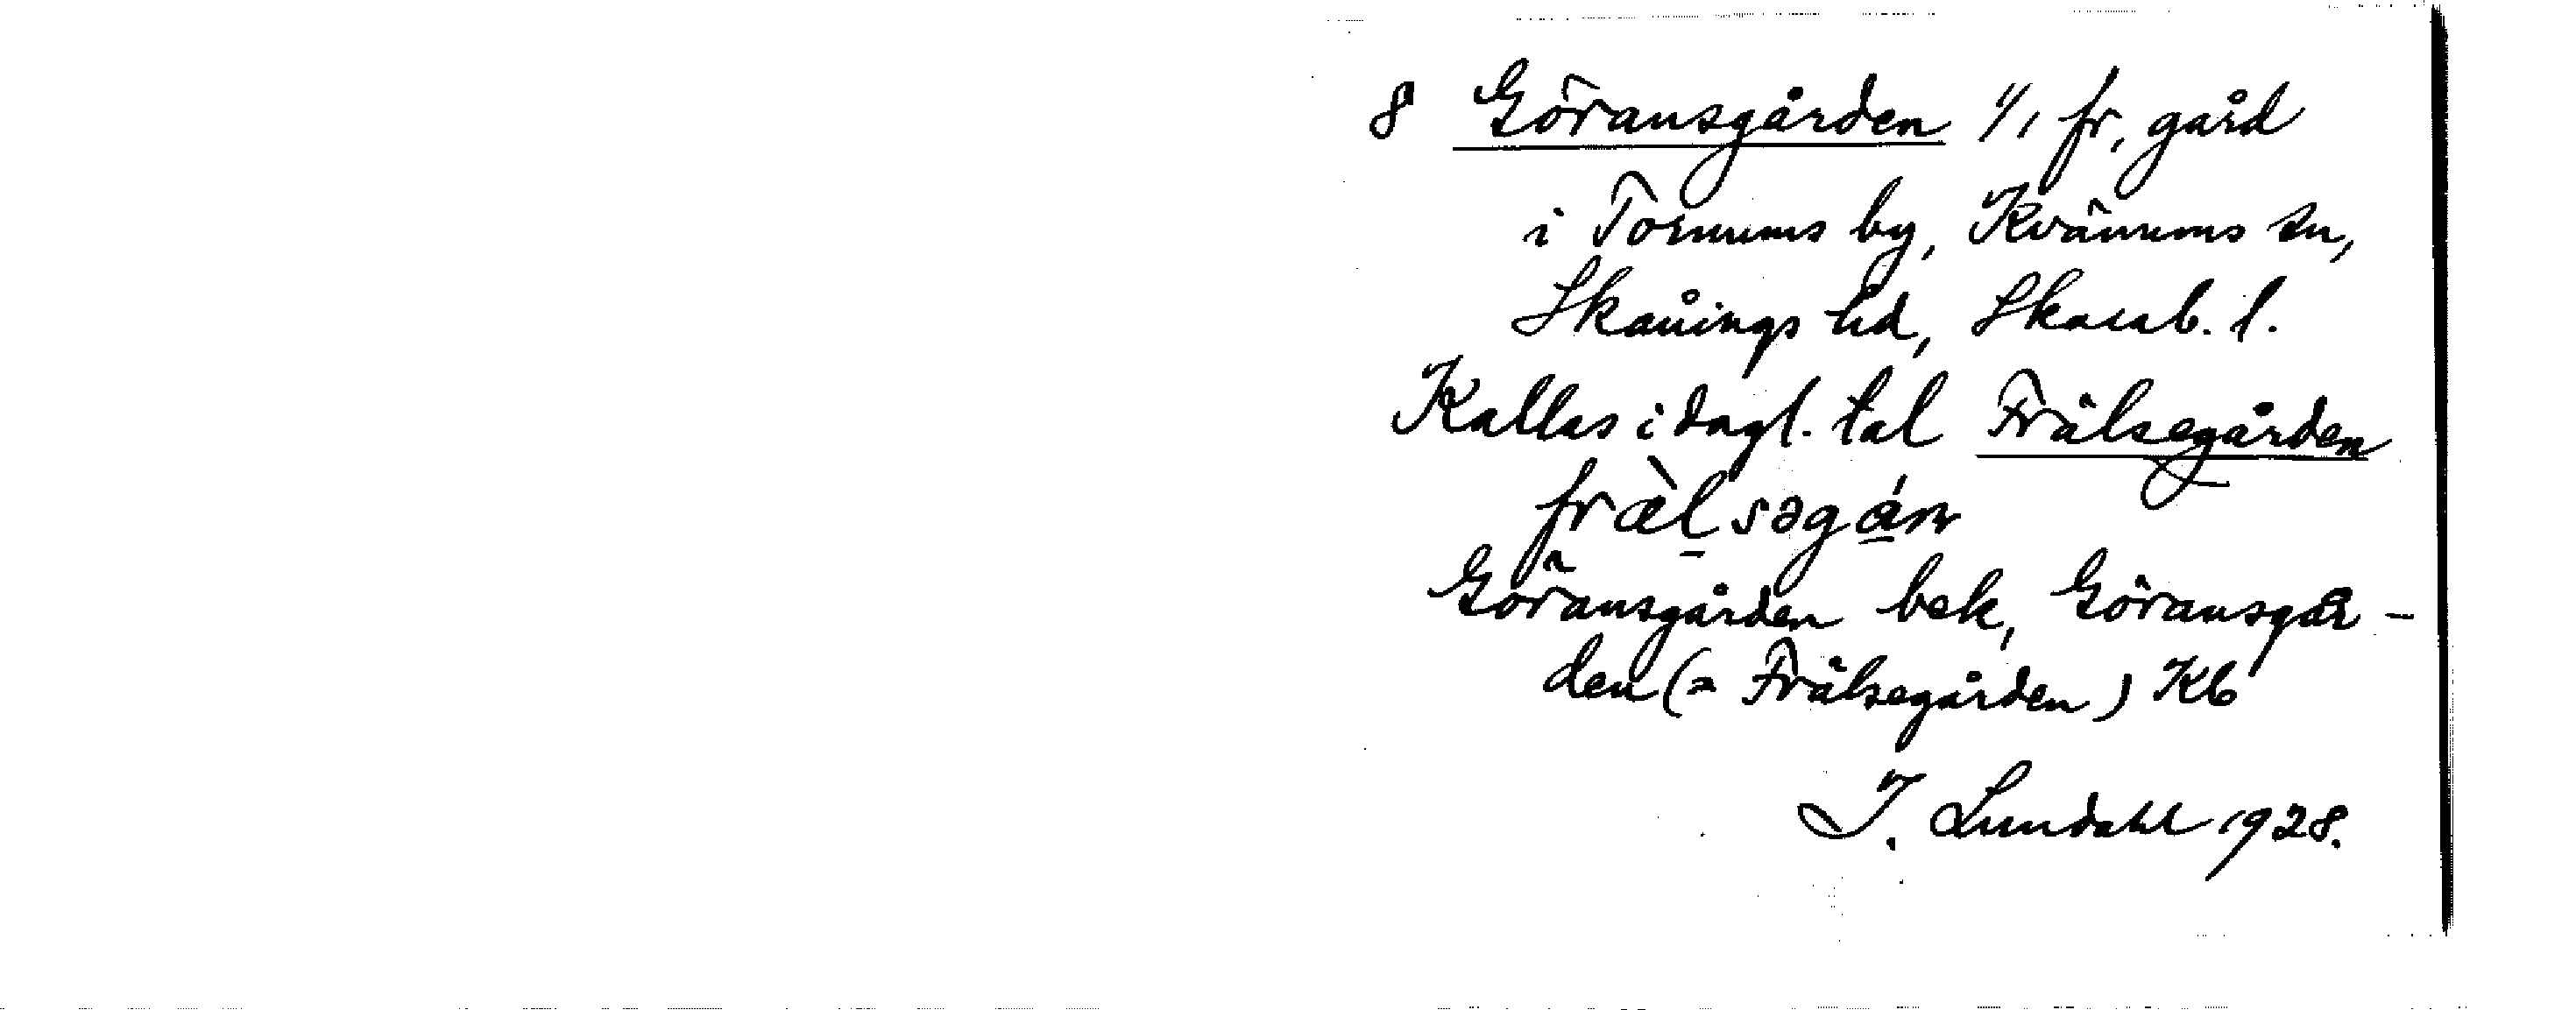 8 Göransgården 1/1 fr, gård
i Tornums by, Kvänums sn,
Skånings hd, Skarab. l.
Kallas i dagl. tal Frälsegården
fræ̀lsəgán
Göransgården bek, Göransgår-
den (= Frälsegården) Kb
I. Lundahl 1928.